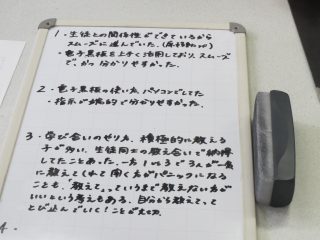 1・生徒との関係性ができているから
スムーズに進んでいた。
・電子黒板を上手く活用しており、スムーズ
で、かつ分かりやすかった。
2・電子黒板の使い方、パソコンでしてた
・指示が端的で分かりやすかった。
3・学び合いのやり方、積極的に教える
子が多い、生徒同士の教え合いで納得
してたことあった。一方1に3で3人が一気
に教えてくれて聞く方がパニックになる
ことも、教えて。っていうまで教えない方が
いいという考えもある。自分から教えてって
とび込んでいて!ことが大切
A.